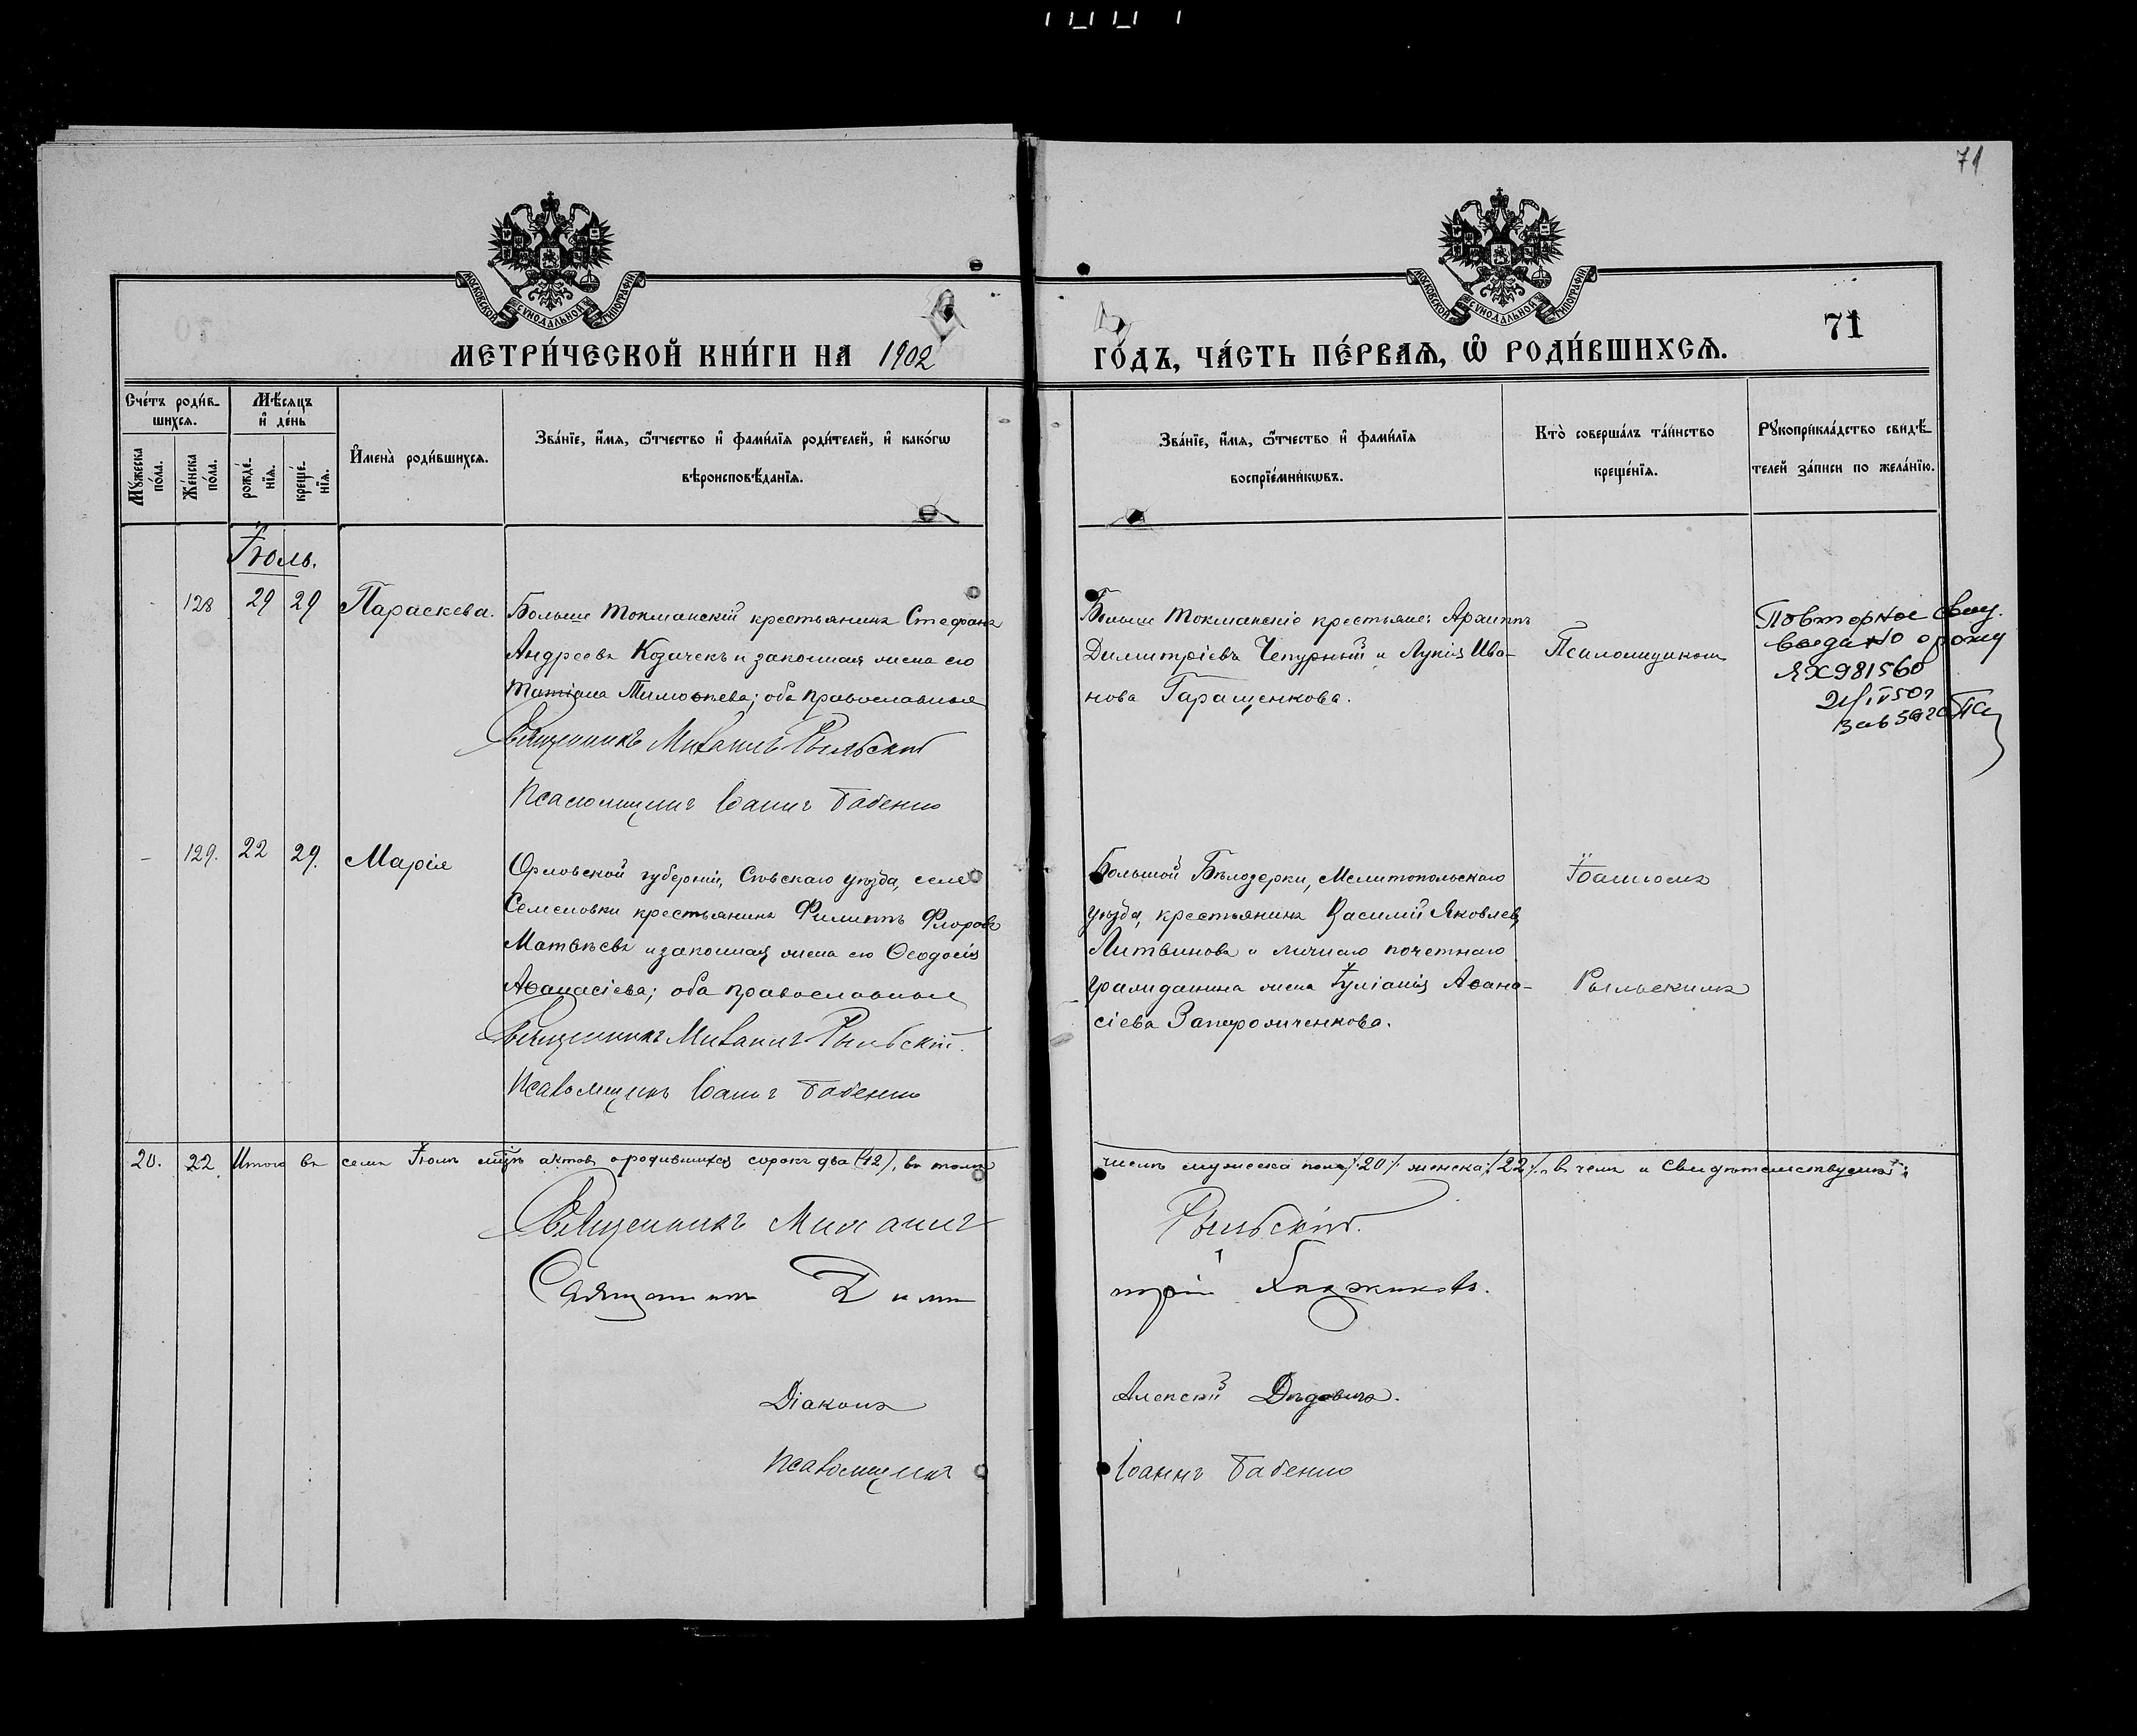 71
МОСКОВСКОЙ СУНОДАЛЬНОЙ ТИПОГРАФІИ
МОСКОВСКОЙ СУНОДАЛЬНОЙ ТИПОГРАФІИ
МЕТРИ́ЧЕСКОЙ КНИ́ГИ НА 1902
ГО́ДЪ, ЧА́СТЬ ПЕ́РВАЯ, Ѡ҆ РОДИ́ВШИХСЯ.
71
Сче́тъ роди́в-
шихся.
Мѣсяцъ
и҆ де́нь
Мꙋжеска
по́ла.
Же́нска
по́ла.
рожде́-
нїя.
креще́-
нїя.
И҆мена̀ роди́вшихся.
Зва́нїе, и҆́мя, ѻ҆́тчество и҆ фами́лїя роди́телей, и҆ како́гѡ
вѣроисповѣданїя.
Зва́нїе, и҆́мя, ѻ҆́тчество и҆ фами́лїя
воспрїе́мникѡвъ.
Кто̀ соверша́лъ та́инство
креще́нїя.
Рꙋкоприкла́дство свидѣ-
телей за́писи по жела́нїю.
Іюль.
128 29 29 Параскева.
Больше Токмакскій крестьянинъ Стефанъ
Андреевъ Козачекъ и законная жена его
Татіана Тимоѳеева; оба православные
Священникъ Михаилъ Рыльскій
Псаломщикъ Іоаннъ Бабенко
Больше Токмакскіе крестьяне: Архиппъ
Димитріевъ Чепурный и Лукія Ива-
нова Гаращенкова.
Псаломщиком
Повторное свид.
выдано о рожд
ЯХ981560
- 129. 22 29. Марія
Орловской губерніи, Сѣвскаго уѣзда, села
Семеновки крестьянинъ Филиппъ Флоровъ
Матвѣевъ и законная жена его Ѳеодосія
Аѳанасіева; оба православные
Священникъ Михаилъ Рыльскій.
Псаломщикъ Іоаннъ Бабенко
Большой Бѣлозерки, Мелитопольскаго
уѣзда, крестьянинъ Василій Яковлев,
Литвиновъ и личнаго почетнаго
гражданина жена Іуліанія Аѳана-
сіева
Іоанномъ
Рыльскимъ
20. 22 Итого въ семъ Іюлѣ мѣсцѣ актовъ о родившихся сорокъ два (42), въ томъ
числѣ мужеска пола /20/ женска /22/, въ чемъ и свидѣтельствуемъ:
Священникъ Михаилъ
Рыльскій.
Священникъ Дими
трій
Діаконъ
Алексій
Псаломщикъ
Іоаннъ Бабенко